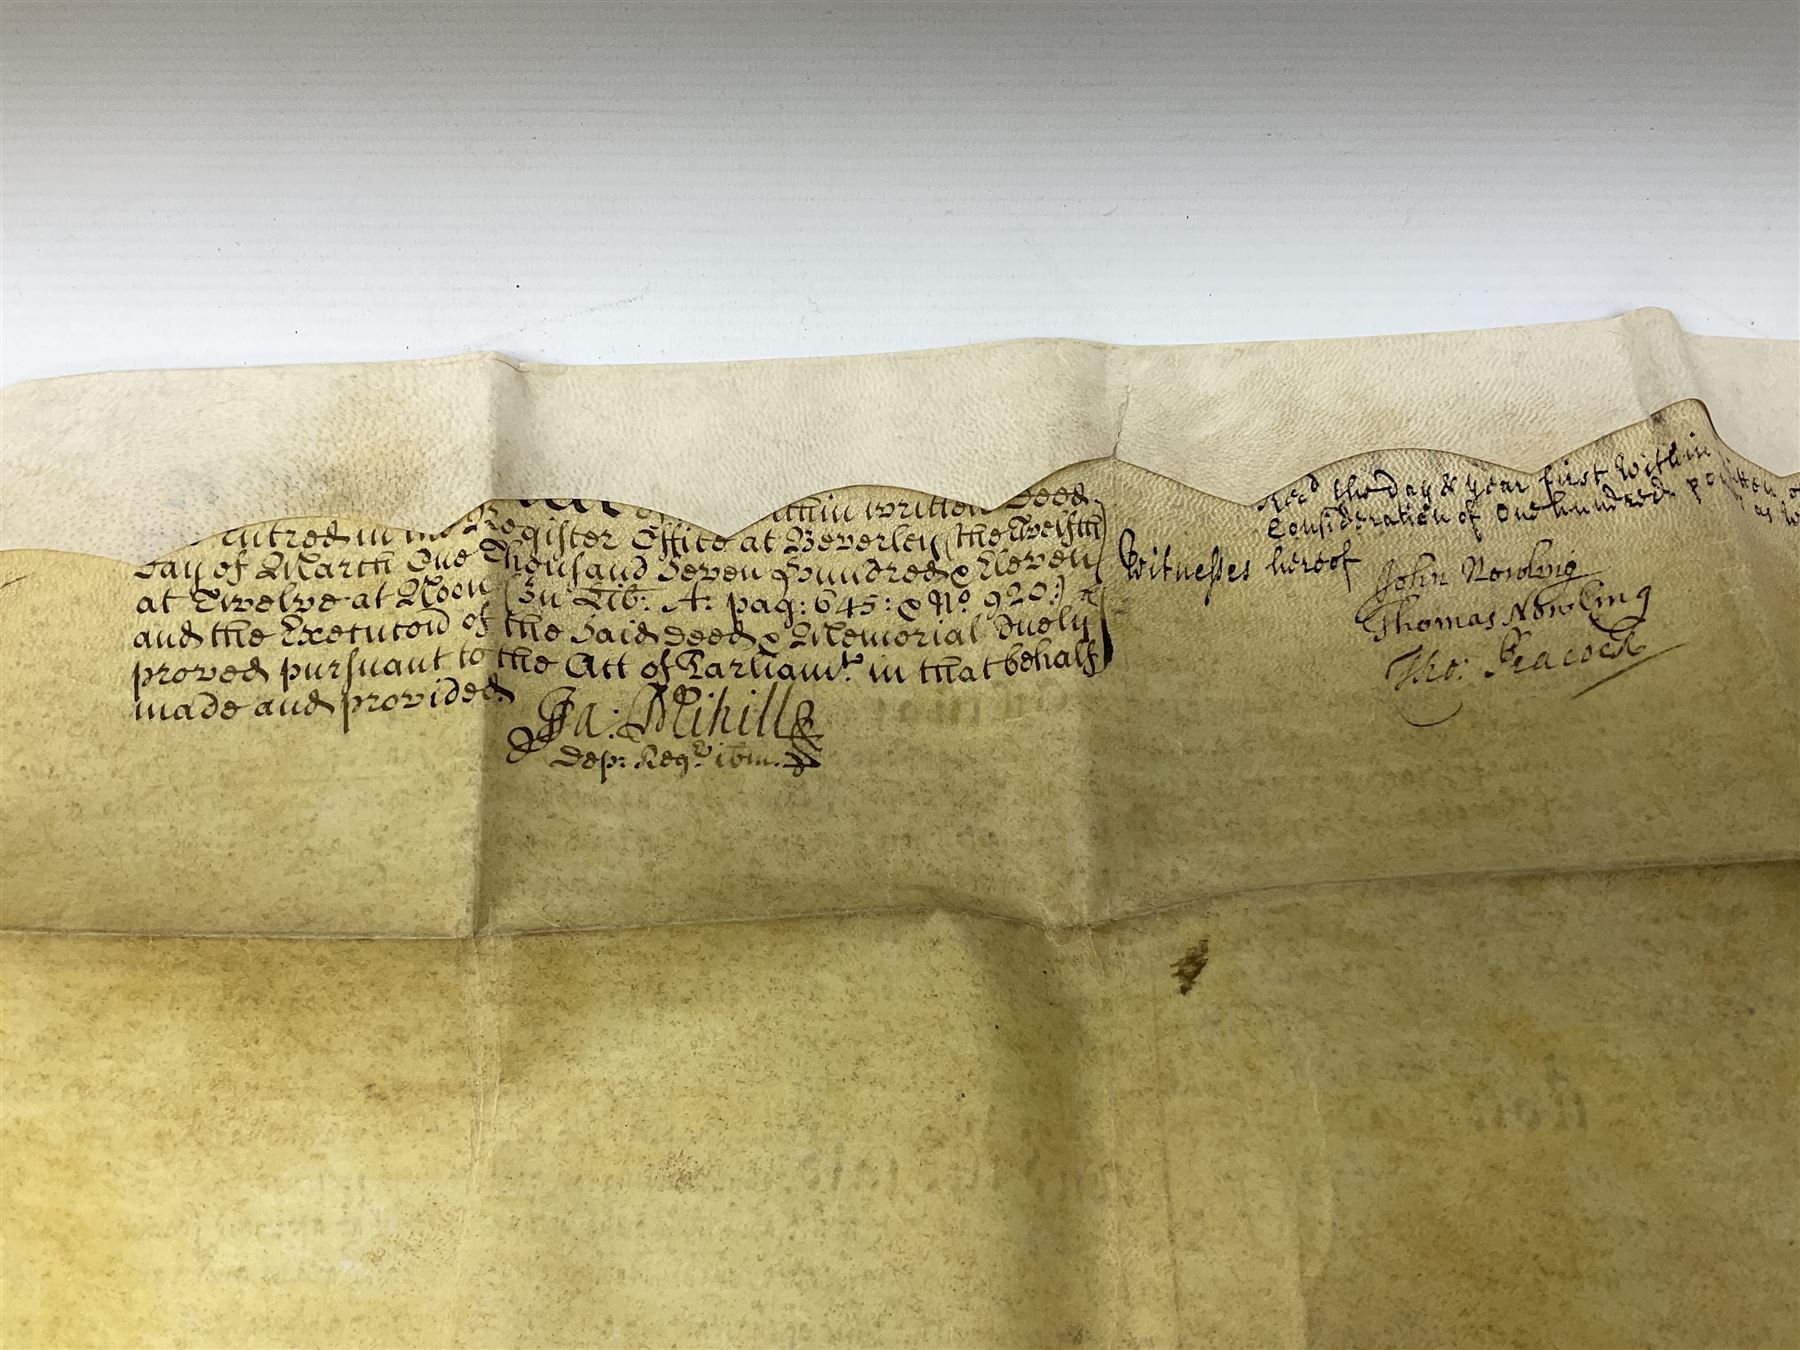 within written Deed
Entred in the Register Office at Beverley (the twelfth
Day of March One Thousand Seven Hundred & Eleven
at Twelve at Noon (In Lib: A: pag: 645: & No. 920:)
and the Execucon of the Said Deed & Memorial Duely
proved pursuant to the Act of Parliamt. in that behalf
made and provided.
Ja: Mihill
Dep: Regr. ibm.
Recd the day & year first within written
Consideration of One hundred pounds as
Witnesses hereof
John Nowling
Thomas Nowling
Tho: Peacock